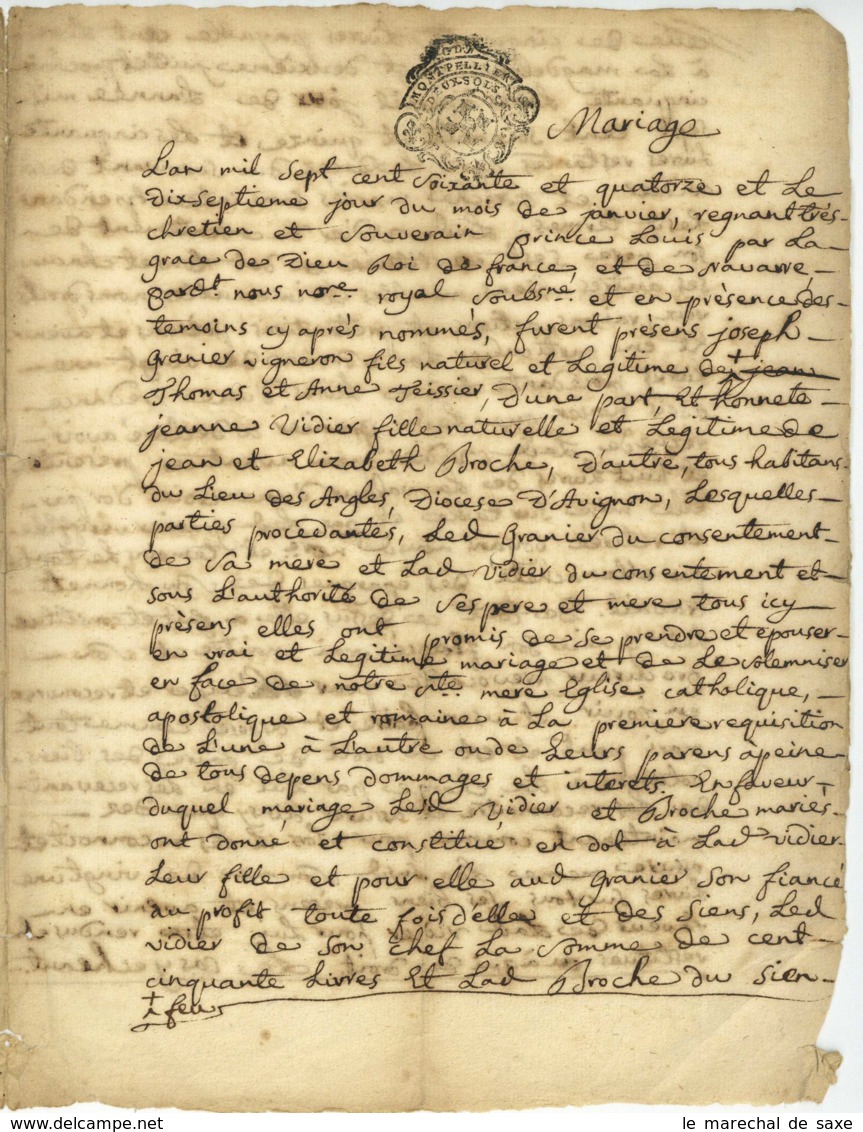 GDE
MONTPELLIER
DEUX SOLS
Mariage
L'an mil sept cent soixante et quatorze et Le
dixseptieme jour du mois de janvier, regnant trés-
chretien et souverain prince Louis par La
grace de Dieu Roi de france, et de Navarre,
pardt. nous nore. royal soubsne. et en présence des-
temoins cy aprés nommés, furent présens joseph
granier vigneron fils naturel et Legitime de + jean
Thomas et Anne Teissier, D'une part, Et honnete
jeanne Vidier fille naturelle et Legitime de
jean et Elizabeth Broche, d'autre, tous habitans
du Lieu des Angles, Diocese D'Avignon, Lesquelles
parties procedantes, Led Granier du consentement
de sa mere et Lad Vidier du consentement et
sous L'authorité de ses pere et mere tous icy
présens elles ont promis de se prendre et épouser
en vrai et Legitime mariage et de Le solemniser
en face de notre ste. mere Eglise catholique,
apostolique et romaine à La premiere requisition
de L'une à L'autre ou de Leurs parens àpeine
de tous depens dommages et interets. En faveur
duquel mariage Lesd Vidier et Broche mariés
ont donné et constitué en dot à Lad Vidier
Leur fille et pour elle aud Granier son fiancé
au profit toute fois d'elle et des siens, Led
vidier de son chef La somme de cent
cinquante Livres Et Lad Broche du sien
+ feu
le marechal de saxe